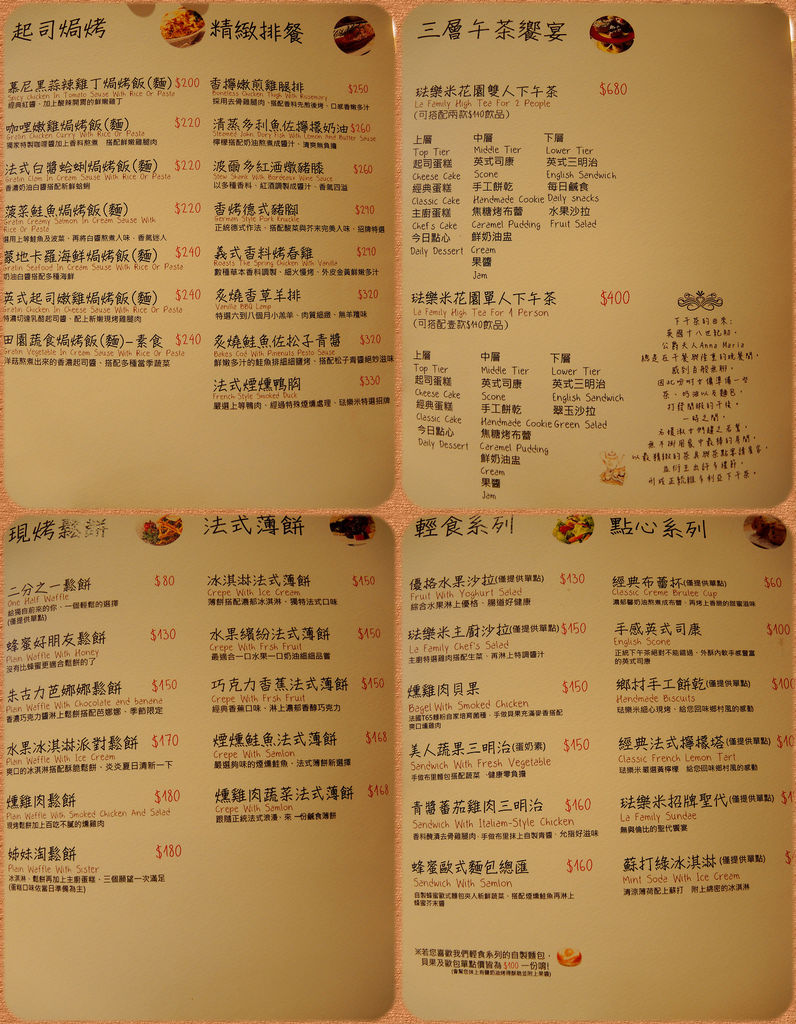 起司焗烤
慕尼黑蒜辣雞丁焗烤飯(麵) $200
Spicy chicken In Tomato Sause With Rice Or Pasta
經典紅醬、加上酸辣開胃的鮮嫩雞丁
咖哩嫩雞焗烤飯(麵) $220
Gratin Chicken Curry With Rice Or Pasta
獨家特製咖哩醬加上香料熬煮 搭配鮮嫩雞腿肉
法式白醬蛤蜊焗烤飯(麵) $220
Gratin Clam In Cream Sause With Rice Or Pasta
香濃奶油白醬搭配新鮮蛤蜊
菠菜鮭魚焗烤飯(麵) $220
Gratin Creamy Salmon In Cream Sause With
Rice Or Pasta
選用上等鮭魚及波菜、再將白醬熬煮入味、香氣迷人
蒙地卡羅海鮮焗烤飯(麵) $240
Gratin Seafood In Cream Sause With Rice Or Pasta
奶油白醬搭配多種海鮮
英式起司嫩雞焗烤飯(麵) $240
Gratin Chicken In Cheese Sause With Rice Or Pasta
特濃切達乳酪起司醬、配上新嫩現烤雞腿肉
田園蔬食焗烤飯(麵)-素食 $240
Gratin Vegetable In Cream Sause With Rice Or Pasta
洋菇熬煮出來的香濃起司醬、搭配多種當季蔬菜
精緻排餐
香檸嫩煎雞腿排 $250
Boneless Chicken Thigh With Rosemary
採用去骨雞腿肉、搭配香料先煎後烤、口感香嫩多汁
清蒸多利魚佐檸檬奶油 $260
Steamed John Dory Fish With Lemon And Butter Sause
檸檬搭配奶油醬汁、清爽無負擔
波爾多紅酒燉豬膝 $260
Stew Shank With Bordeaux Wine Sauce
以多種香料、紅酒調製成醬汁、香氣四溢
香烤德式豬腳 $290
German Style Pork Knuckle
正統德式作法、搭配酸菜與芥末完美入味、招牌特選
義式香料烤春雞 $290
Roasts The Spring Chicken With Vanilla
數種草本香料調製、細火慢烤、外皮金黃鮮嫩多汁
炙燒香草羊排 $320
Vanilla BBQ Lamp
特選六到八個月小羔羊、肉質細緻、無羊羶味
炙燒鮭魚佐松子青醬 $320
Bakes Cod With Pinenuts Pesto Sause
鮮嫩多汁的鮭魚排細細鹽烤、搭配松子青醬絕妙滋味
法式煙燻鴨胸 $330
French Style Smoked Duck
嚴選上等鴨肉、經過特殊煙燻處理、琺樂米特選招牌
三層午茶饗宴
琺樂米花園雙人下午茶 $680
La Family High Tea For 2 People
(可搭配兩款$140飲品)
上層 中層 下層
Top Tier Middle Tier Lower Tier
起司蛋糕 英式司康 英式三明治
Cheese Cake Scone English Sandwich
經典蛋糕 手工餅乾 每日鹹食
Classic Cake Handmade Cookie Daily snacks
主廚蛋糕 焦糖烤布蕾 水果沙拉
Chef's Cake Caramel Pudding Fruit Salad
今日點心 鮮奶油盅
Daily Dessert Cream
果醬
Jam
琺樂米花園單人下午茶 $400
La Family High Tea For 1 Person
(可搭配壹款$140飲品)
上層 中層 下層
Top Tier Middle Tier Lower Tier
起司蛋糕 英式司康 英式三明治
Cheese Cake Scone English Sandwich
經典蛋糕 手工餅乾 翠玉沙拉
Classic Cake Handmade Cookie Green Salad
今日點心 焦糖烤布蕾
Daily Dessert Caramel Pudding
鮮奶油盅
Cream
果醬
Jam
下午茶的由來:
英國十八世紀初,
公爵夫人Anna Maria
總是在午餐與晚餐的晚餐間,
感到百般無聊,
因此吩咐女僕準備一些
茶、奶油以及麵包,
打發閒暇的午後,
一時之間,
現烤鬆餅
二分之一鬆餅 $80
One Half Waffle
給獨自前來的你、一個輕鬆的選擇
(僅提供單點)
蜂蜜好朋友鬆餅 $130
Plain Waffle With Honey
沒有比蜂蜜更適合鬆餅的了
朱古力芭娜娜鬆餅 $150
Plain Waffle With Chocolate and banana
香濃巧克力醬淋上鬆餅搭配芭娜娜、季節限定
水果冰淇淋派對鬆餅 $170
Plain Waffle With Ice Cream
爽口的冰淇淋搭配酥脆鬆餅、炎炎夏日清新一下
燻雞肉鬆餅 $180
Plain Waffle With Smoked Chicken And Salad
現烤鬆餅加上百吃不膩的燻雞肉
姊妹淘鬆餅 $180
Plain Waffle With Sister
冰淇淋、鬆餅再加上主廚蛋糕、三個願望一次滿足
(蛋糕口味依當日準備為主)
法式薄餅
冰淇淋法式薄餅 $150
Crepe With Ice Cream
薄餅搭配濃郁冰淇淋、獨特法式口味
水果繽紛法式薄餅 $150
Crepe With Frsh Fruit
最適合一口水果一口奶油細細品嘗
巧克力香蕉法式薄餅 $150
Crepe With Frsh Fruit
經典香蕉口味、淋上濃郁香醇巧克力
煙燻鮭魚法式薄餅 $168
Crepe With Samlon
嚴選夠味的煙燻鮭魚、法式薄餅新選擇
燻雞肉蔬菜法式薄餅 $168
Crepe With Samlon
跟隨正統法式浪漫、來一份鹹食薄餅
輕食系列
優格水果沙拉(僅提供單點) $130
Fruit With Yoghurt Salad
綜合水果淋上優格、腸道好健康
琺樂米主廚沙拉(僅提供單點) $150
La Family Chef's Salad
主廚特選雞肉搭配生菜、再淋上特調醬汁
燻雞肉貝果 $150
Bagel With Smoked Chicken
法國T65麵粉自家培育菌種、手做貝果充滿麥香搭配
爽口燻雞肉
美人蔬果三明治(蛋奶素) $150
Sandwich With Fresh Vegetable
手做布里麵包搭配蔬菜、健康零負擔
青醬蕃茄雞肉三明治 $160
Sandwich With Italiam-Style Chicken
香料醃漬去骨雞腿肉、手做布里抹上自製青醬、允指好滋味
蜂蜜歐式麵包總匯 $160
Sandwich With Samlon
自製蜂蜜歐式麵包夾入新鮮蔬菜、搭配煙燻鮭魚再淋上
蜂蜜芥末醬
※若您喜歡我們輕食系列的自製麵包,
貝果及歐包單點價皆為$100一份唷!
(會幫您抹上有鹽奶油烤得酥脆並附上果醬)
點心系列
經典布蕾杯(僅提供單點) $60
Classic Creme Brulee Cup
濃郁馨奶油熬煮成布蕾、再烤上香脆的甜蜜滋味
手感英式司康 $100
English Scone
正統下午茶絕對不能錯過、外酥內軟手感豐富
的英式司康
鄉村手工餅乾(僅提供單點) $100
Handmade Biscuits
琺樂米細心現烤、給您回味鄉村風的感動
經典法式檸檬塔(僅提供單點)
Classic French Lemon Tart
琺樂米嚴選黃檸檬 給您回味鄉村風的感動
琺樂米招牌聖代(僅提供單點)
La Family Sundae
無與倫比的聖代饗宴
蘇打綠冰淇淋(僅提供單點)
Mint Soda With Ice Cream
清涼薄荷配上蘇打 附上綿密的冰淇淋